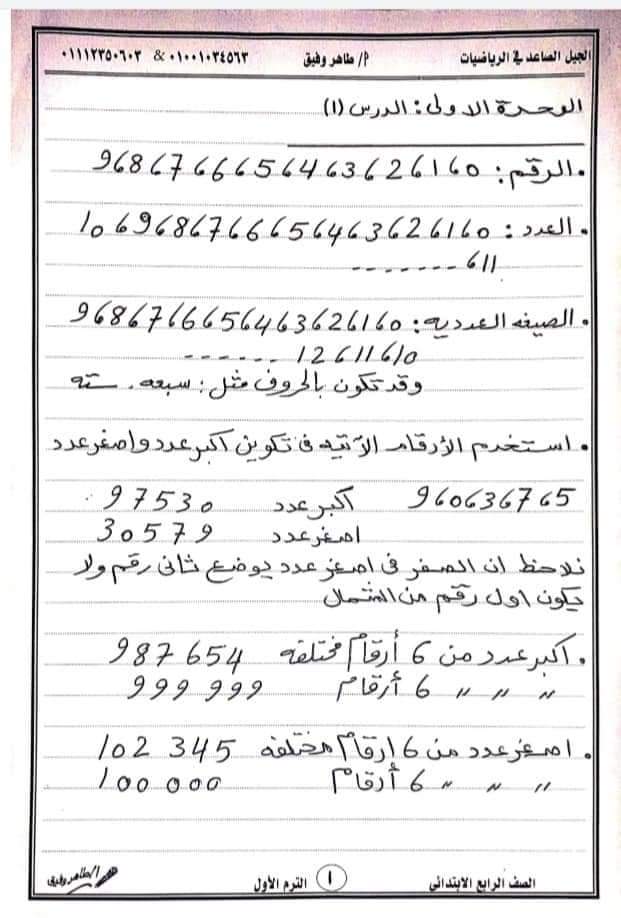 الجيل الصاعد في الرياضيات أ/ طاهر وفيق ٠١٠٠١٠٣٤٥٦٣ & ٠١١١٢٣٥٠٦٠٣
الوحدة الاولى: الدرس (١)
• الرقم: 0، 1، 2، 3، 4، 5، 6، 7، 8، 9
• العدد: 0، 1، 2، 3، 4، 5، 6، 7، 8، 9، 10
11، -------
• الصيغه العدديه: 0، 1، 2، 3، 4، 5، 6، 7، 8، 9
10، 11، 12 ------
وقد تكون بالحروف مثل: سبعه، سته
• استخدم الأرقام الآتيه فى تكوين اكبر عدد واصغر عدد
9، 0، 3، 7، 5 اكبر عدد 97530
اصغر عدد 30579
نلاحظ ان الصفر فى اصغر عدد يوضع ثانى رقم ولا
يكون اول رقم من الشمال
• اكبر عدد من 6 أرقام مختلفه 987 654
〃 〃 〃 6 أرقام 999 999
• اصغر عدد من 6 ارقام مختلفه 102 345
〃 〃 〃 6 أرقام 100 000
الصف الرابع الابتدائى ١ الترم الأول أ/طاهر وفيق